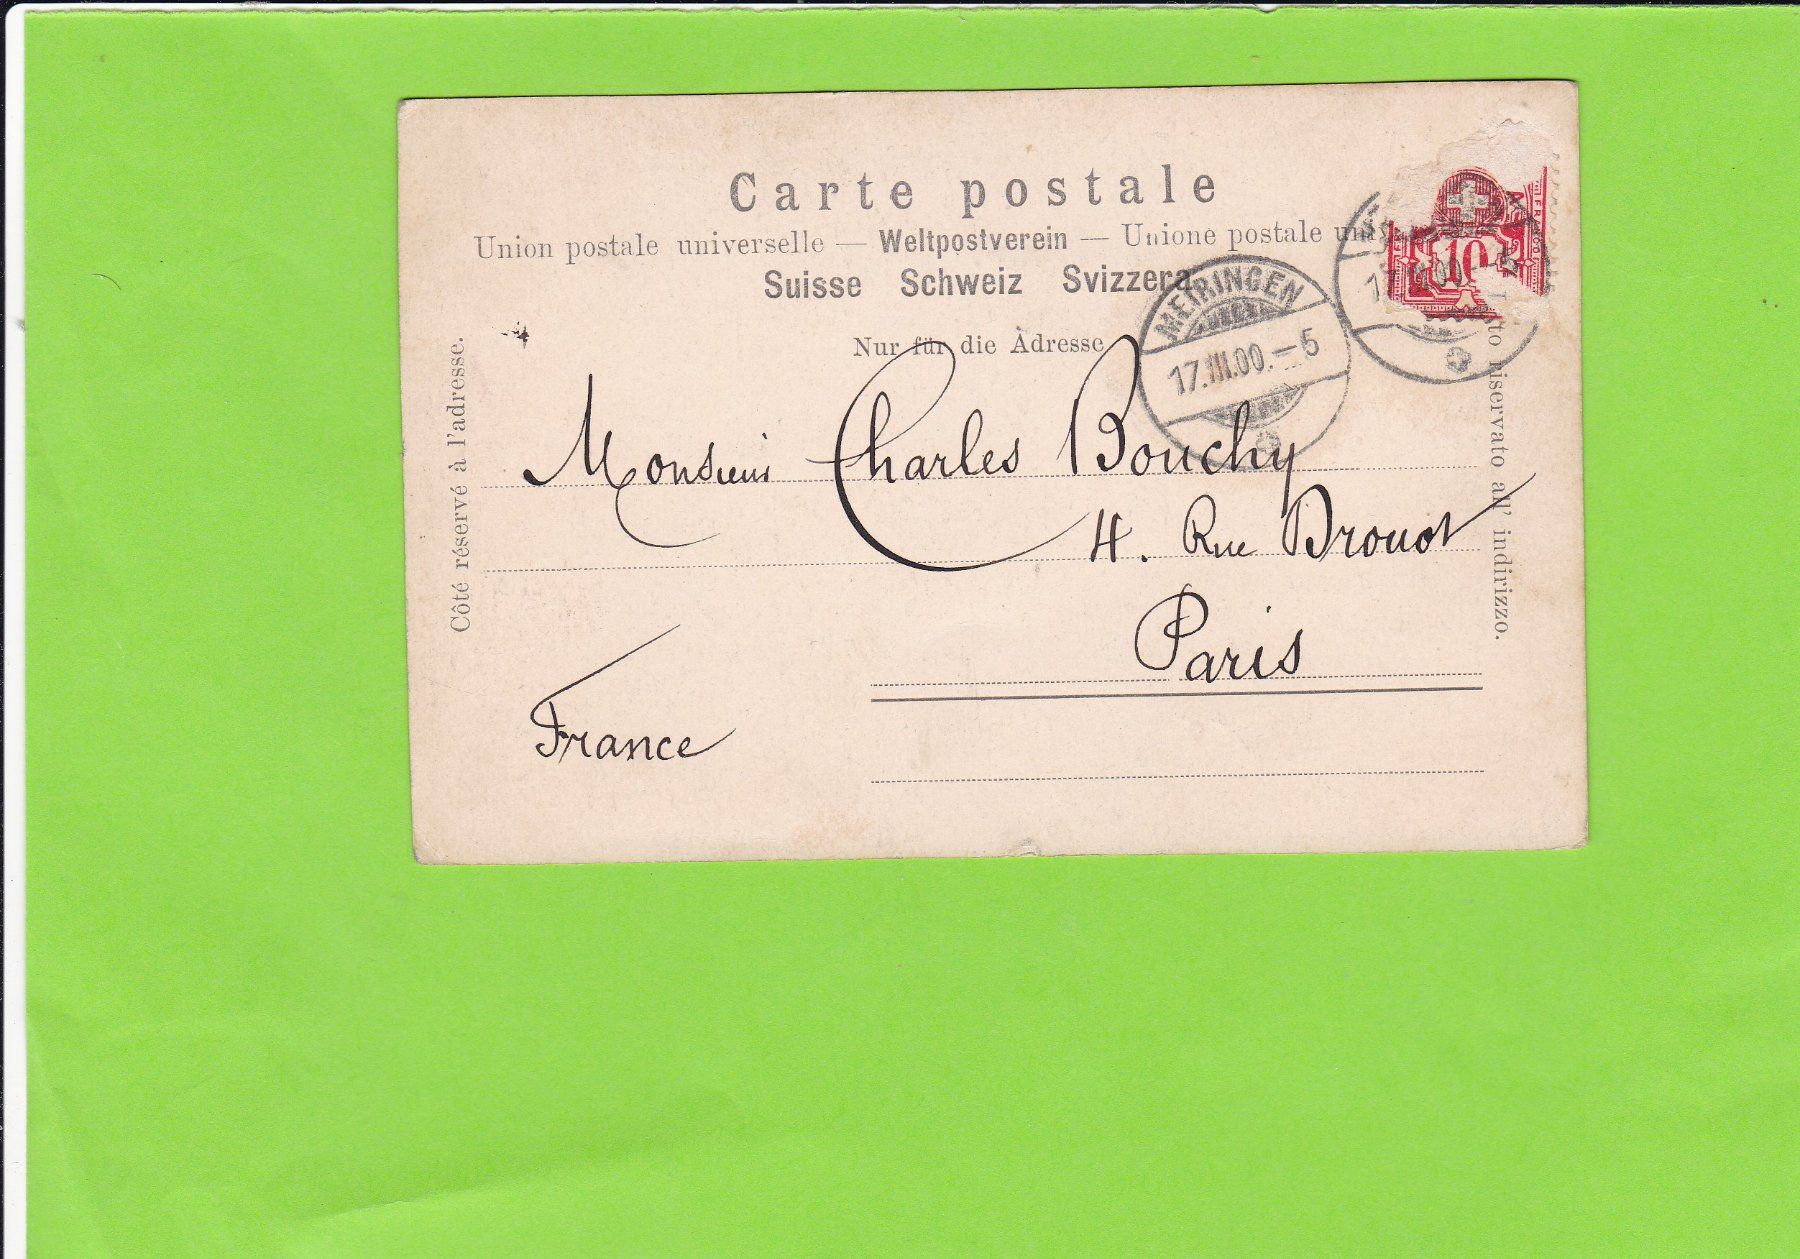 Carte postale
Union postale universelle — Weltpostverein — Unione postale
Suisse Schweiz Svizzera
Nur für die Adresse
Côté réservé à l'adresse.
riservato all' indirizzo.
MEIRINGEN
17.III.00.—5
10
Monsieur Charles Bouchy
4. Rue Drouot
Paris
France